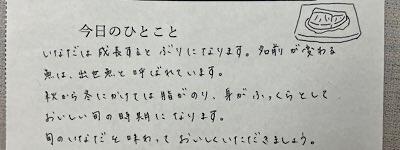 今日のひとこと
いなだは成長するとぶりになります。名前が変わる
魚は、出世魚と呼ばれています。
秋から冬にかけては脂がのり、身がふっくらとして
おいしい旬の時期になります。
旬のいなだを味わっておいしくいただきましょう。